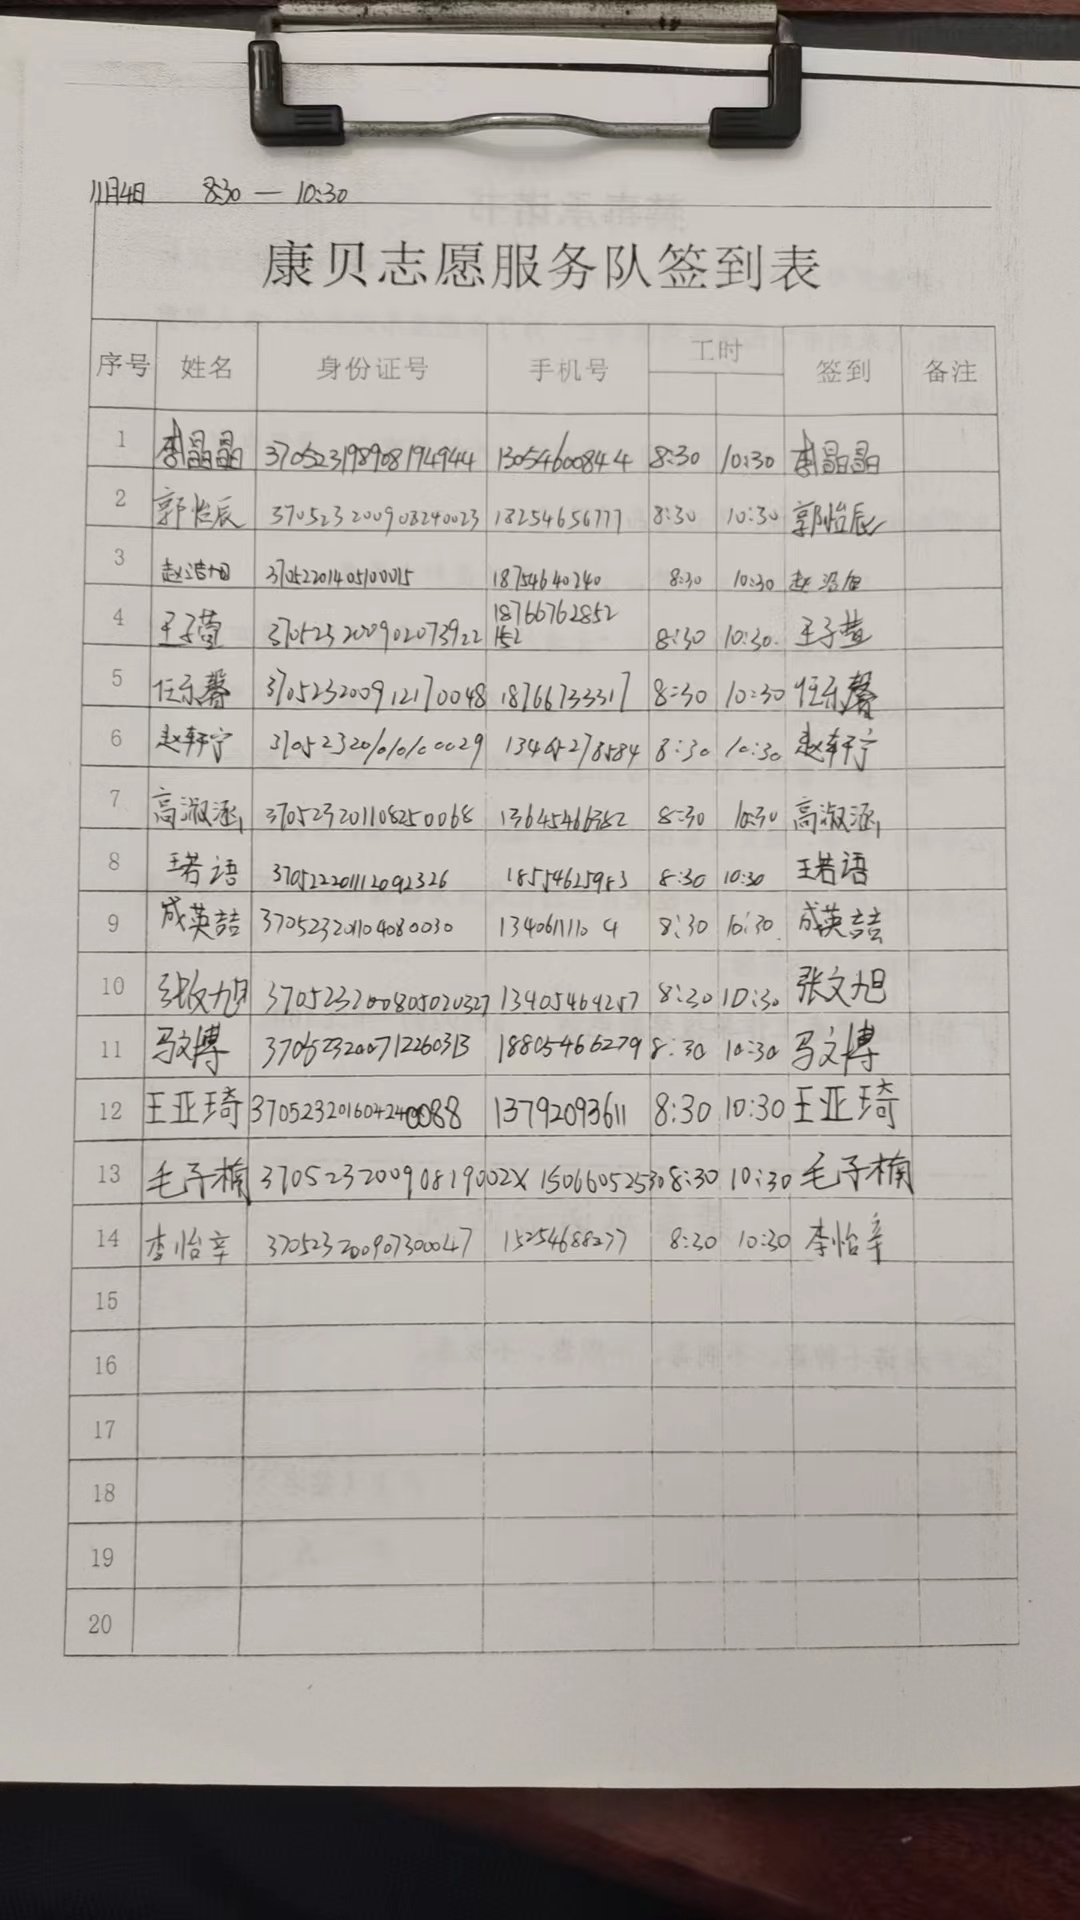 11月4日 8:30 — 10:30
康贝志愿服务队签到表
序号 姓名 身份证号 手机号 工时 签到 备注
1 李晶晶 370523198908194944 13054600844 8:30 10:30 李晶晶
2 郭怡辰 370523200908240023 18254656777 8:30 10:30 郭怡辰
3 赵浩旭 37052201405100015 18754640240 8:30 10:30
4 王子萱 370523200902073922 18766762852 8:30 10:30 王子萱
152
5 任乐馨 370523200912170048 18766733317 8:30 10:30 任乐馨
6 赵轩宁 370523201010100029 13405278584 8:30 10:30 赵轩宁
7 高淑涵 370523201108250068 8:30 10:30 高淑涵
8 王若语 370522201112092326 18554625983 8:30 10:30 王若语
9 成英喆 370523201104080030 13406111104 8:30 10:30 成英喆
10 张文旭 370523200805020327 13405464257 8:30 10:30 张文旭
11 马文博 370523200712260313 18805466279 8:30 10:30 马文博
12 王亚琦 370523201604240088 13792093611 8:30 10:30 王亚琦
13 毛子楠 37052320090819002X 15066052530 8:30 10:30 毛子楠
14 李怡辛 370523200907300047 15254688277 8:30 10:30 李怡辛
15
16
17
18
19
20